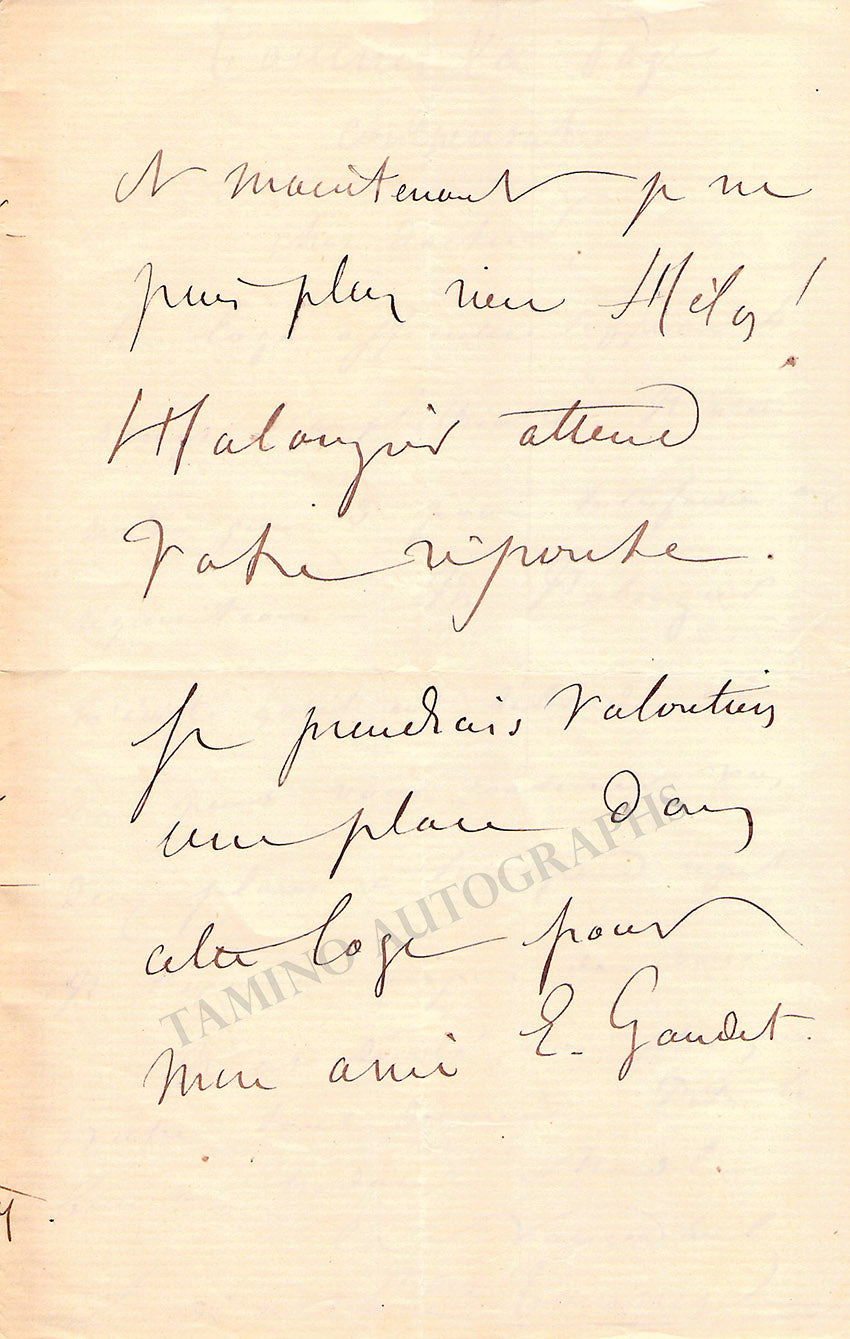 Et maintenant je ne
puis plus rien Hélas!
Halanzier attend
Votre réponse.
Je prendrais Volontiers
une place dans
cette loge pour
mon ami E. Gaudet.
TAMINO AUTOGRAPHS